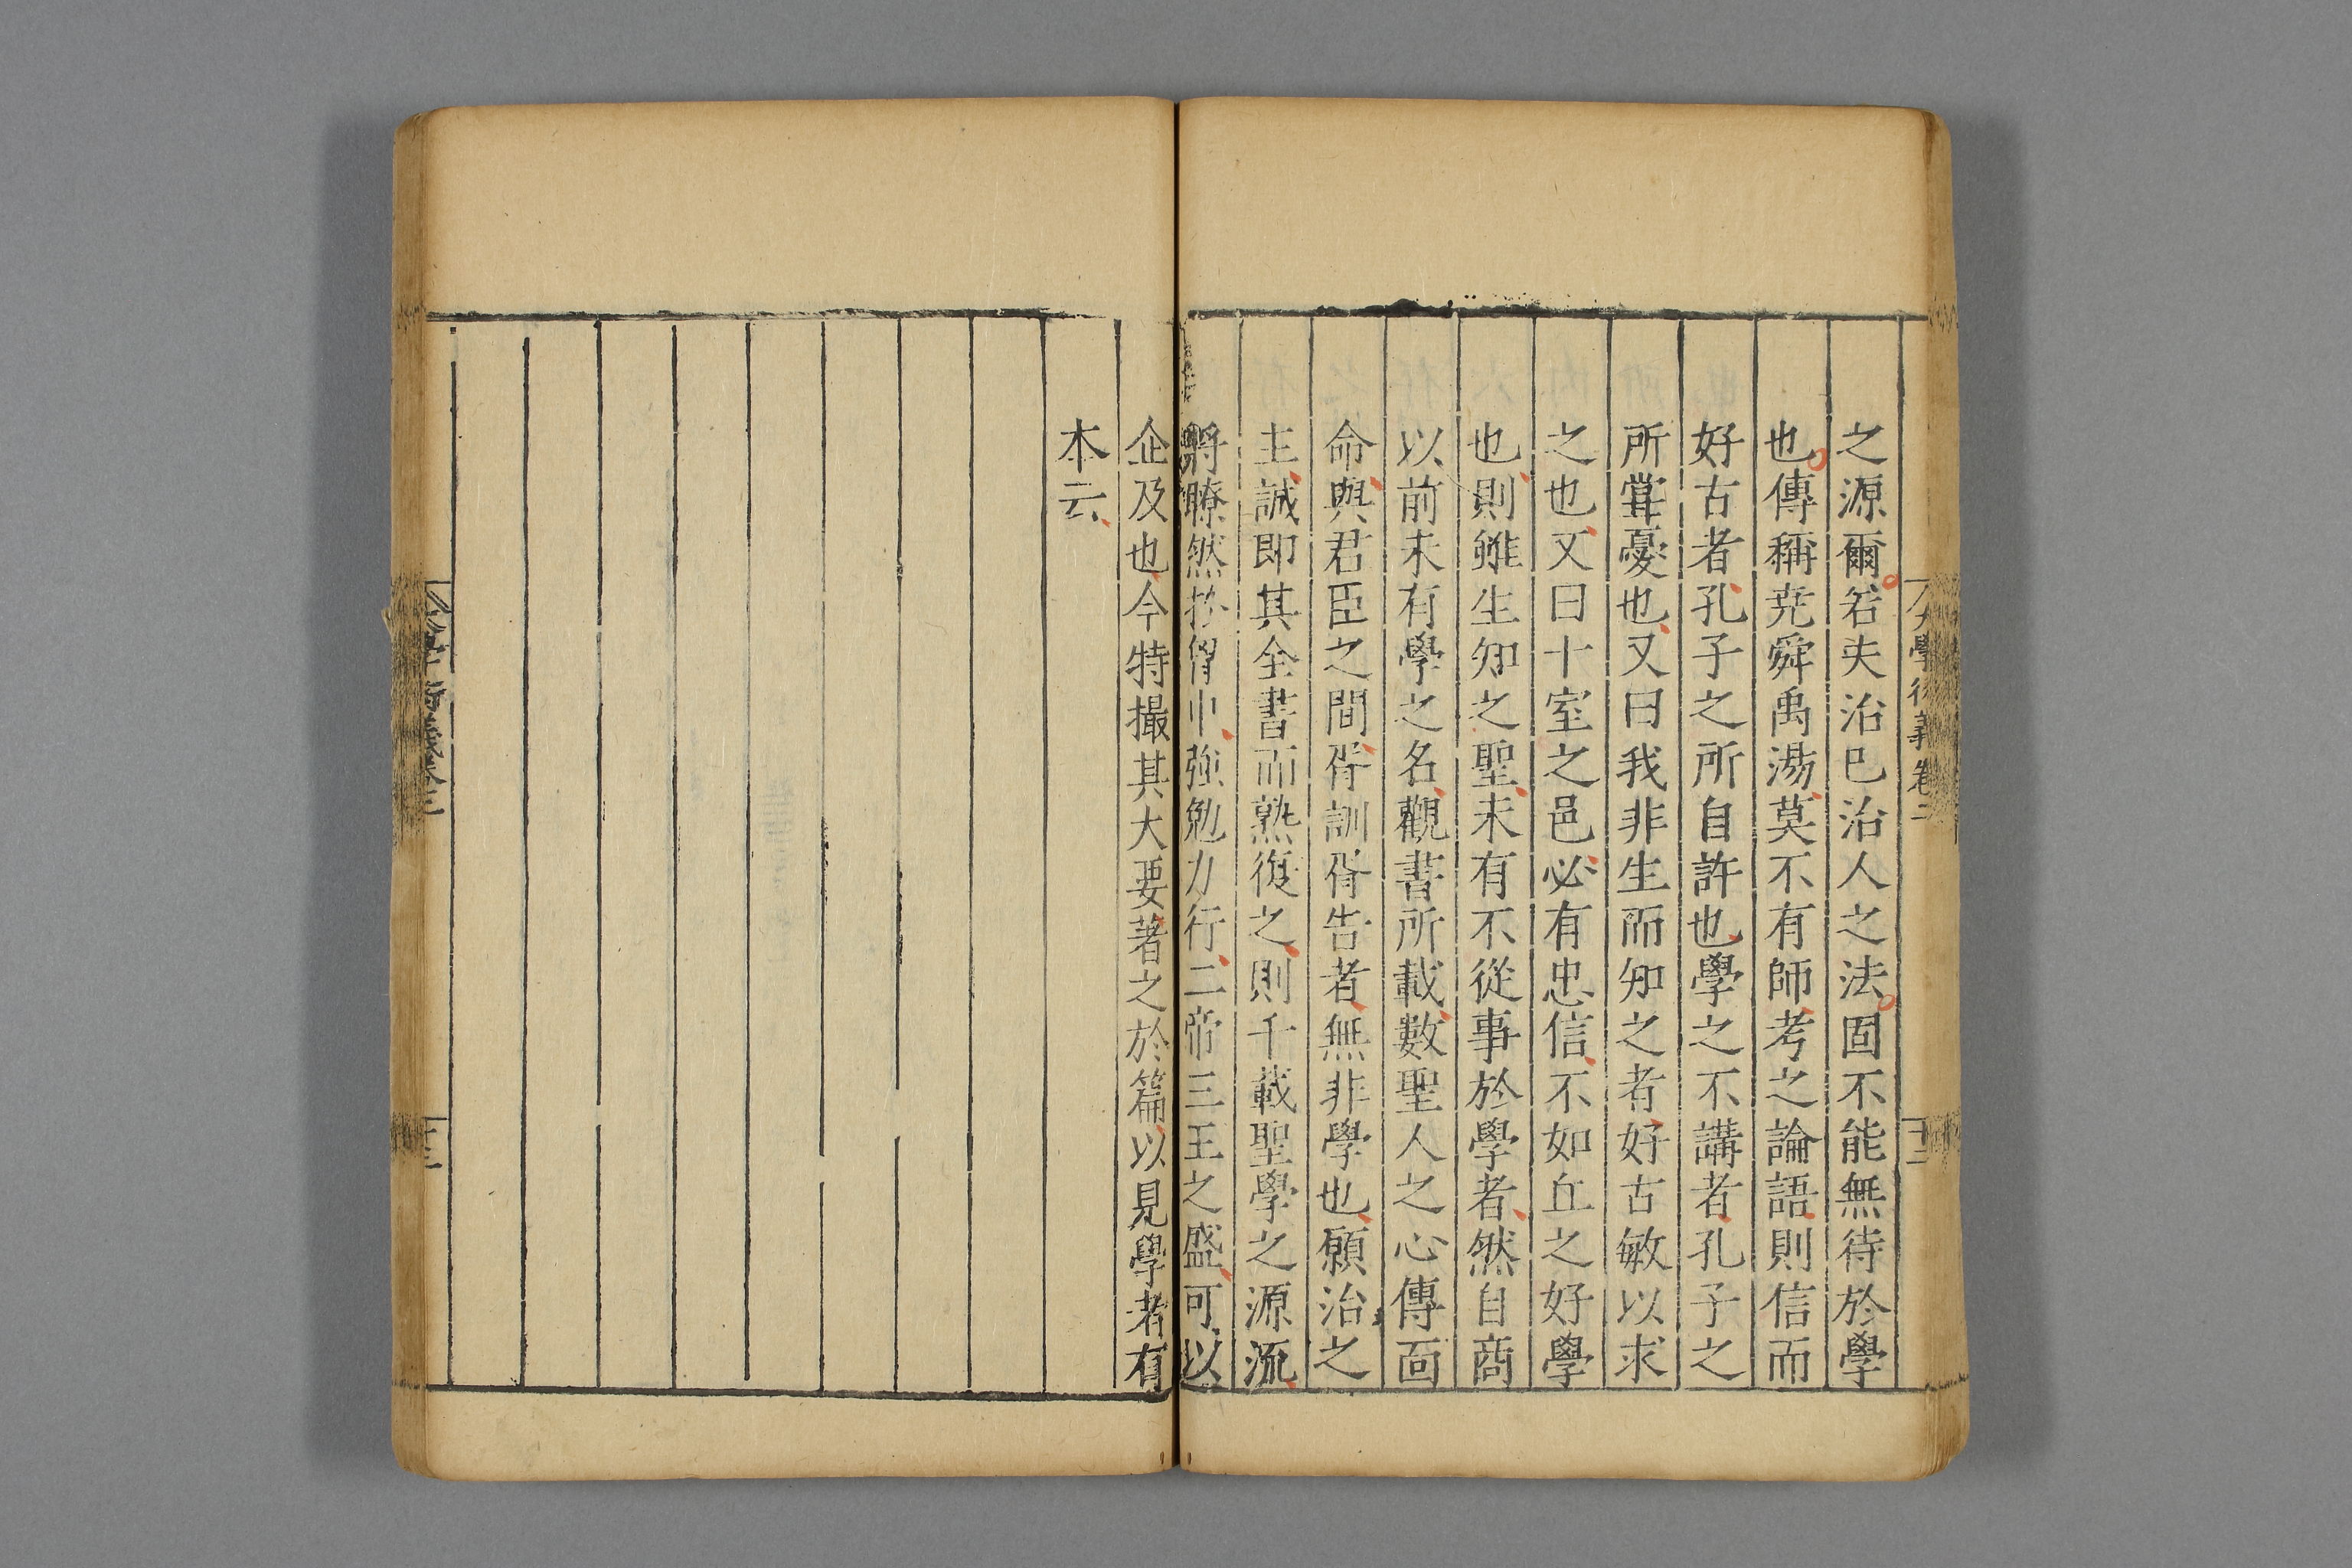 大學衍義卷二
十二
之源爾若夫治已治人之法固不能無待於學
也傳稱堯舜禹湯莫不有師考之論語則信而
好古者孔子之所自許也學之不講者孔子之
所甞憂也又曰我非生而知之者好古敏以求
之也又曰十室之邑必有忠信不如丘之好學
也則雖生知之聖未有不從事於學者然自商
以前未有學之名觀書所載數聖人之心傳靣
命與君臣之間胥訓胥告者無非學也願治之
主誠即其全書而熟復之則千載聖學之源流
將瞭然於胷中強勉力行二帝三王之盛可以
企及也今特撮其大要著之於篇以見學者有
本云